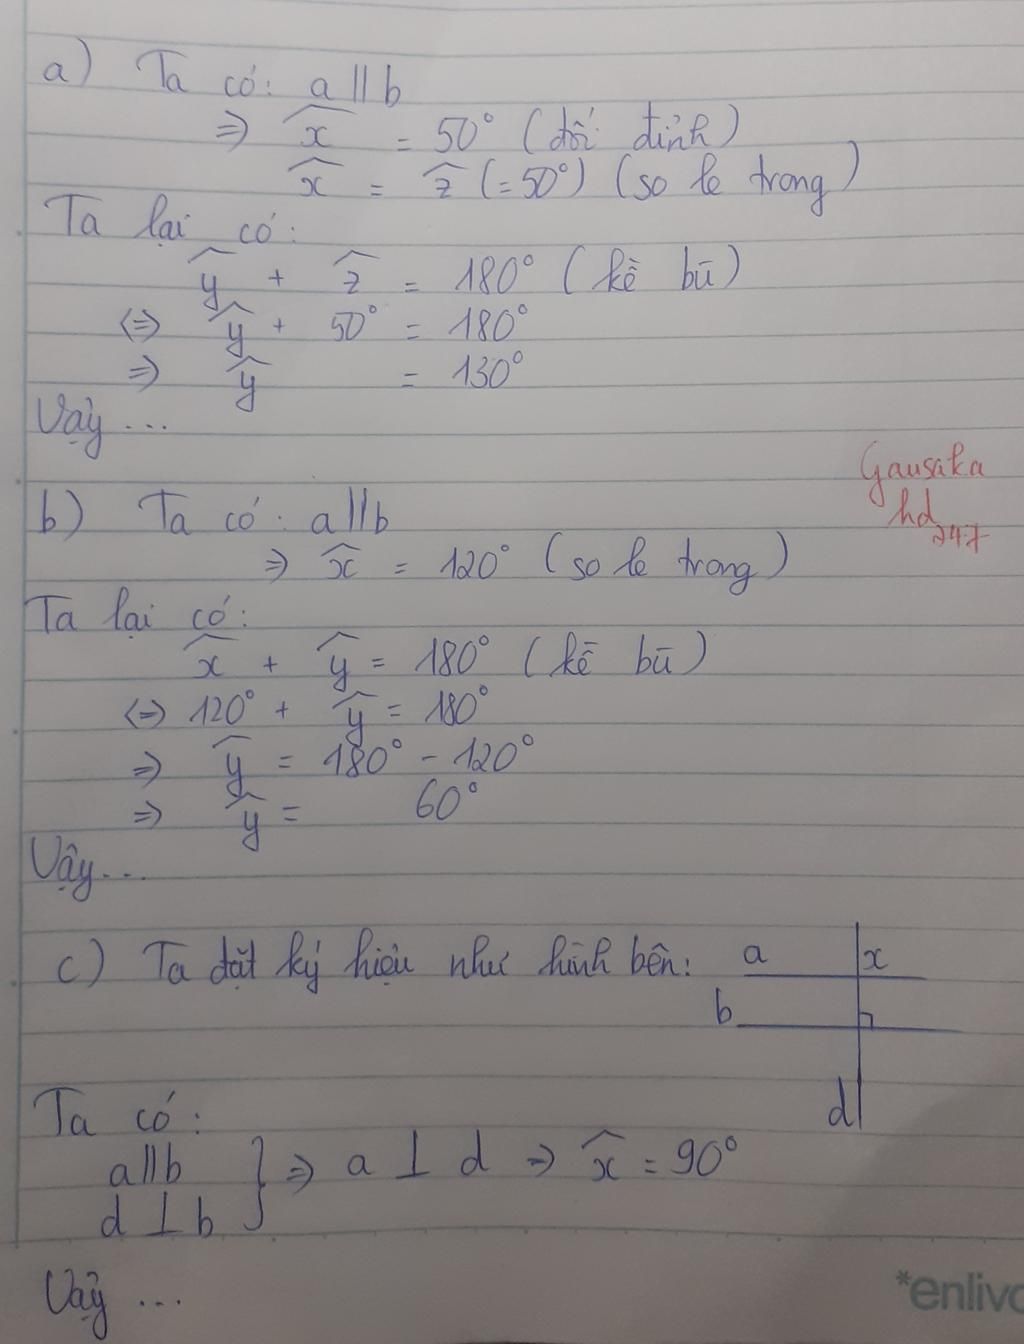 a) Ta có: a || b
⇒ x̂ = 50° (đối đỉnh)
x̂ = ẑ (= 50°) (so le trong)
Ta lại có:
ŷ + ẑ = 180° (kề bù)
⇔ ŷ + 50° = 180°
⇒ ŷ = 130°
Vậy ...
Gausaka
hd
247
b) Ta có: a || b
⇒ x̂ = 120° (so le trong)
Ta lại có:
x̂ + ŷ = 180° (kề bù)
⇔ 120° + ŷ = 180°
⇒ ŷ = 180° - 120°
⇒ ŷ = 60°
Vậy ...
c) Ta đặt ký hiệu như hình bên:
a x
b
d
Ta có:
a || b } ⇒ a ⊥ d ⇒ x̂ = 90°
d ⊥ b
Vậy ...
*enlivo